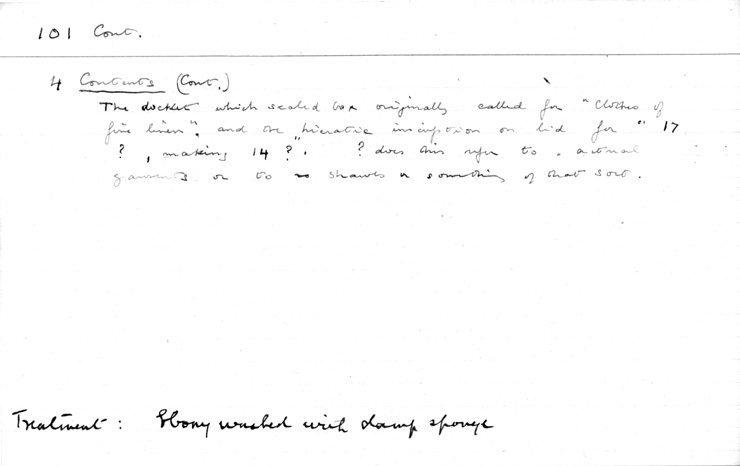 101 Cont.
4 Contents (Cont.)
The docket which sealed box originally called for "Clothes of
fine linen", and the hieratic inscription on lid for "17
? , making 14 ? . ? does this refer to actual
garments or to shawls or something of that sort.
Treatment : Ebony washed with damp sponge